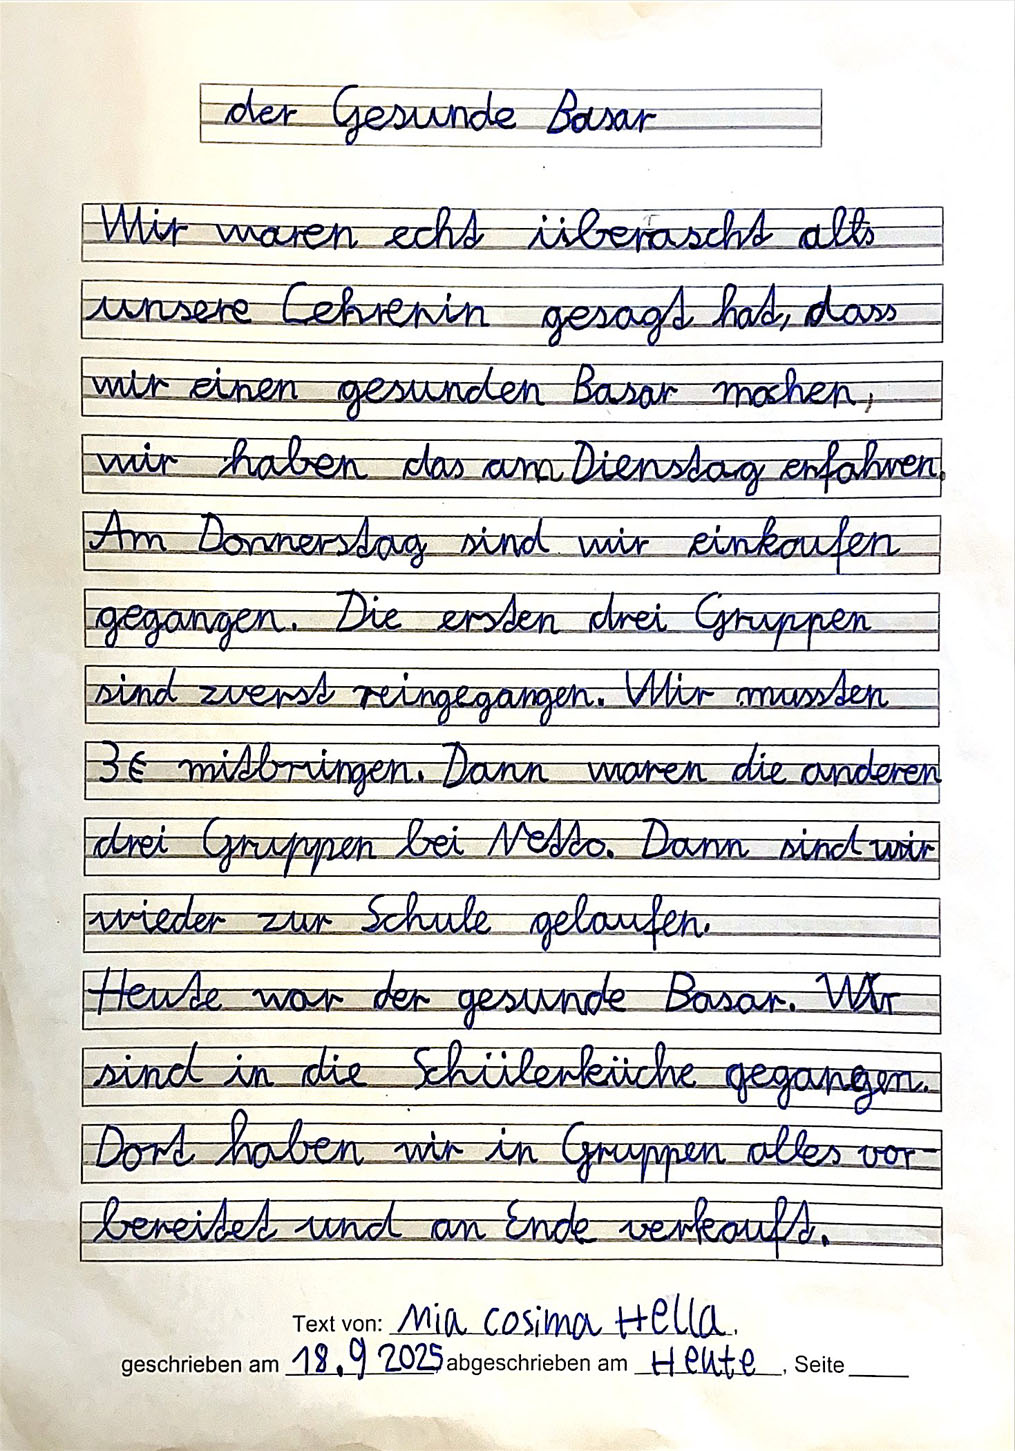 der Gesunde Basar
Wir waren echt überascht alls
unsere Lehrerin gesagt hat, dass
wir einen gesunden Basar machen,
wir haben das am Dienstag erfahren.
Am Donnerstag sind wir einkaufen
gegangen. Die ersten drei Gruppen
sind zuerst reingegangen. Wir mussten
3€ mitbringen. Dann waren die anderen
drei Gruppen bei Netto. Dann sind wir
wieder zur Schule gelaufen.
Heute war der gesunde Basar. Wir
sind in die Schülerküche gegangen.
Dort haben wir in Gruppen alles vor-
bereitet und an Ende verkauft.
Text von: Mia Cosima Hella.
geschrieben am 18.9 2025 abgeschrieben am Heute, Seite